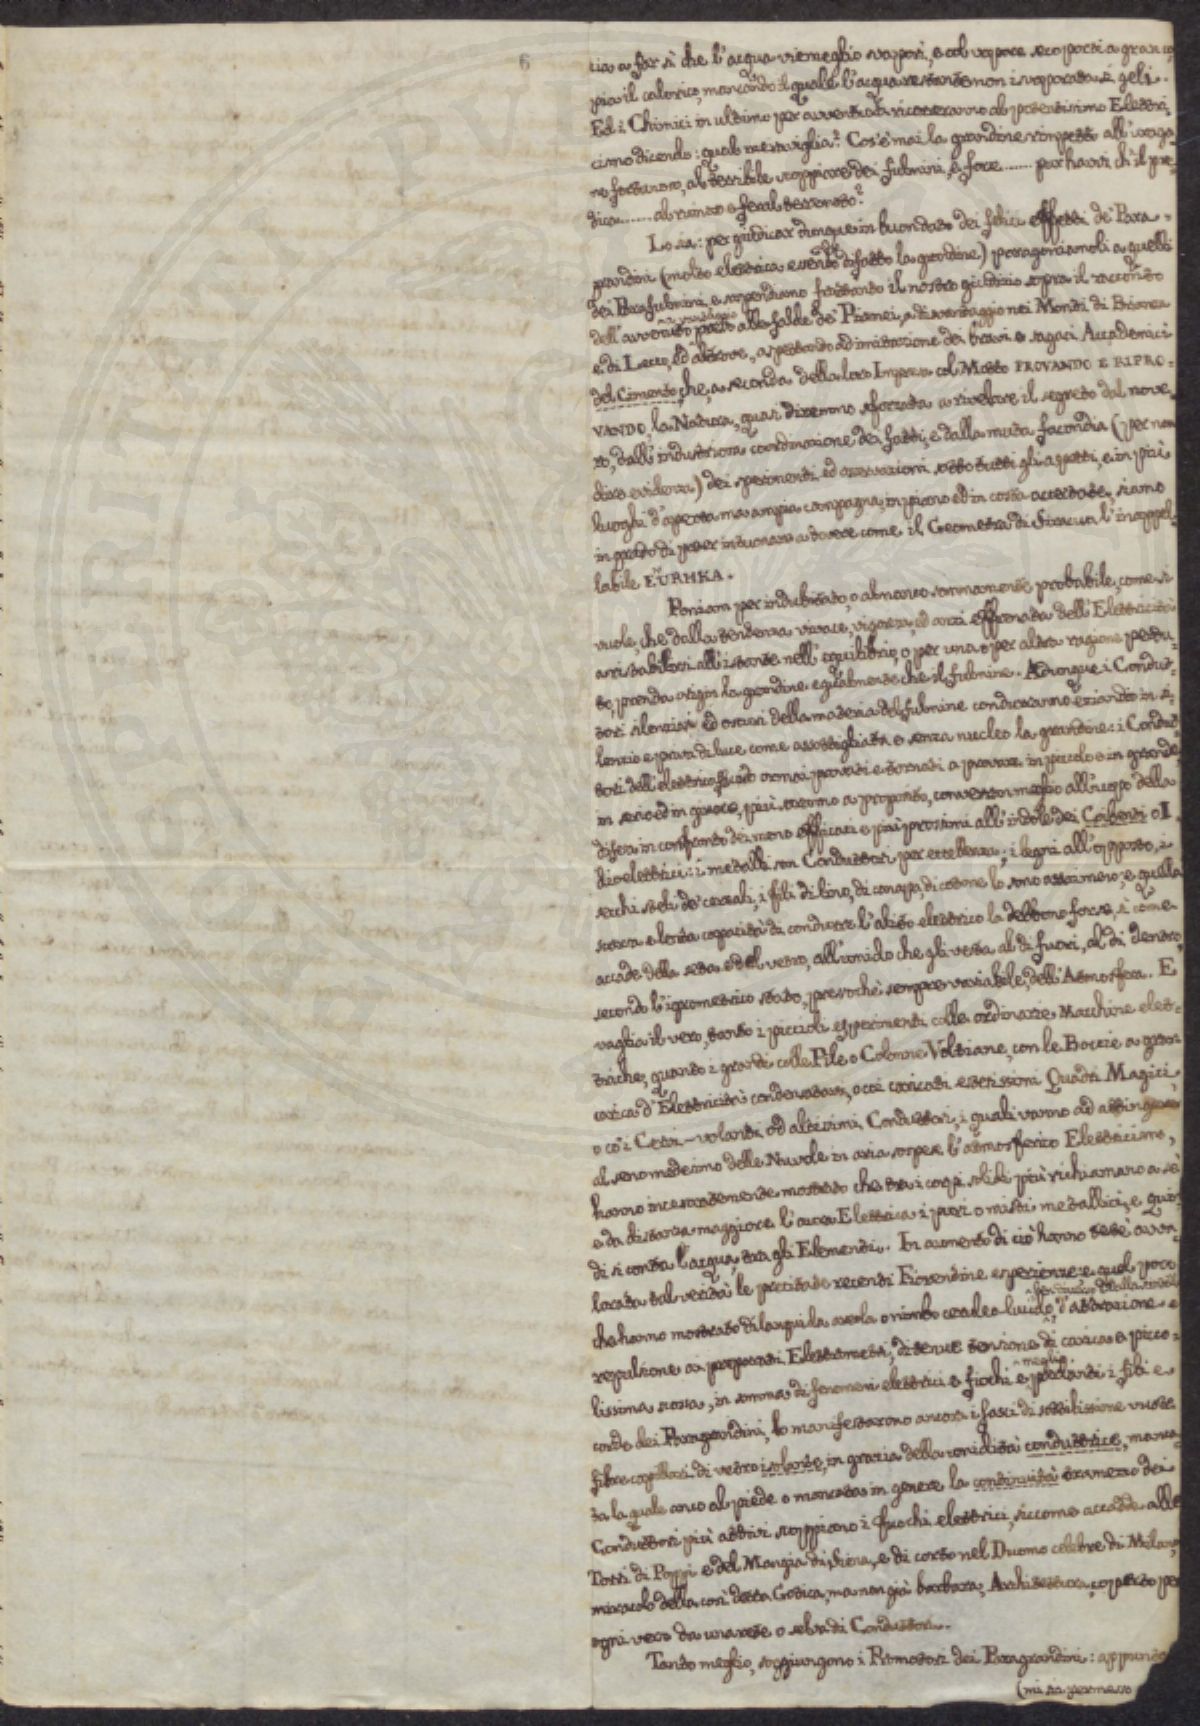 6
cia a far sì che l'acqua viemeglio svapori, e col vapore seco porti a gran co
pia il calorico, mancando il quale l'acqua restante non isvaporata si geli.
Ed i Chimici in ultimo per avventura ricorreranno al potentissimo Elettri,
cismo dicendo: qual meraviglia? Cos'è mai la grandine rimpetto all'uraga
no fortunoso, al terribile scoppiare dei fulmini, e forse ...... pur havvi chi il pre,
dica ...... al rapido e feral terremoto?
Lo sia: per giudicar dunque in buon dato dei felici effetti de' Para-
grandini (molto elettrica essendo difatto la grandine) paragoniamoli a quelli
dei Parafulmini, e sospendiamo frattanto il nostro giudizio sopra il racconto
dell'avvenuto a vantaggio alle falde de' Pirenei, a disvantaggio nei Monti di Brianza
e di Lecco, ed altrove, aspettando ad imitazione dei bravi e sagaci Accademici
del Cimento che, a seconda della loro Impresa col Motto PROVANDO E RIPRO-
VANDO, la Natura, quasi diremmo sforzata a rivelare il segreto dal nove,
ro, dall'industriosa coordinazione dei fatti, e dalla muta facondia (per non
dire evidenza) dei sperimenti ed osservazioni sotto tutti gli aspetti, e in più
luoghi d'aperta ma ampia campagna, in piano ed in costa accertate, siamo
in grado di poter intuonare a dovere come il Geometra di Siracusa l'inappel,
labile ΕΥΡΗΚΑ.
Poniam per indubitato, o almanco sommamente probabile, come si
vuole, che dalla tendenza vivace, vigorosa, ed anzi effrenata dell'Elettricità
a ristabilirsi all'istante nell'equilibrio, o per una o per altra ragione perdu-
to, prenda origin la grandine egualmente che il fulmine. Adunque i Condut-
tori silenziosi ed oscuri della materia del fulmine condurranno eziandio in si-
lenzio e priva di luce come assottigliata e senza nucleo la grandine: i Condut
tori dell'elettrico fluido ormai provati e tornati a provare in piccolo e in grande
in serio ed in giuoco, più saranno a proposito, converran meglio all'uopo della
difesa in confronto dei meno efficaci e più prossimi all'indole dei Coibenti o I.
dioelettrici: i metalli son Conduttori per eccellenza; i legni all'opposto, i
secchi steli de' cereali, i fili di lino, di canapa, di cotone lo sono assai meno, e quella
scarsa e lenta capacità di condurre l'alito elettrico la debbono forse, sì come
accade della seta e del vetro, all'umido che gli vesta al di fuori, al di dentro,
secondo l'igrometrico stato, pressochè sempre variabile, dell'Atmosfera. E
vaglia il vero, tanto i piccioli esperimenti colle ordinarie Macchine elet-
triche, quanto i grandi colle Pile o Colonne Voltiane, con le Boccie a gran
carica d'Elettricità condensatori, o coi caricati estesissimi Quadri Magici,
o co' i Cervi-volanti od altissimi Conduttori, i quali vanno ad attingere
al seno medesimo delle Nuvole in aria sospese l'atmosferico Elettricismo,
hanno incessantemente mostrato che tra i corpi solidi più richiamano a sè
e da distanza maggiore l'aura Elettrica i puri o misti metallici, e quin-
di si conta l'acqua tra gli Elementi. In aumento di ciò hanno testè avva-
lorata tal verità le precitate recenti Fiorentine esperienze e quel poco
che hanno mostrato di languida areola o nimbo ceruleo-lucido, d'attrazione e
repulsione ai preparati Elettrometri, di tenue tensione di carica e picco-
lissima scossa, in somma di fenomeni elettrici e fiochi e meglio parlanti i fili e
corde dei Paragrandini, lo manifestarono ancora i fasci di sottilissime vuote
fibre capillari di vetro isolante, in grazia della umidità conduttrice, manca-
ta la quale anco al piede o mancata in genere la continuità tramezzo dei
Conduttori più attivi scoppiano i fuochi elettrici, siccome accadde alle
Torri di Poppi e del Mangia di Siena, e di certo nel Duomo celebre di Milano,
miracolo della così detta Gotica, ma non già barbara, Architettura, coperto per
ogni verso da una rete o selva di Conduttori.
Tanto meglio, soggiungono i Promotori dei Paragrandini: appunto
(mi sia permesso